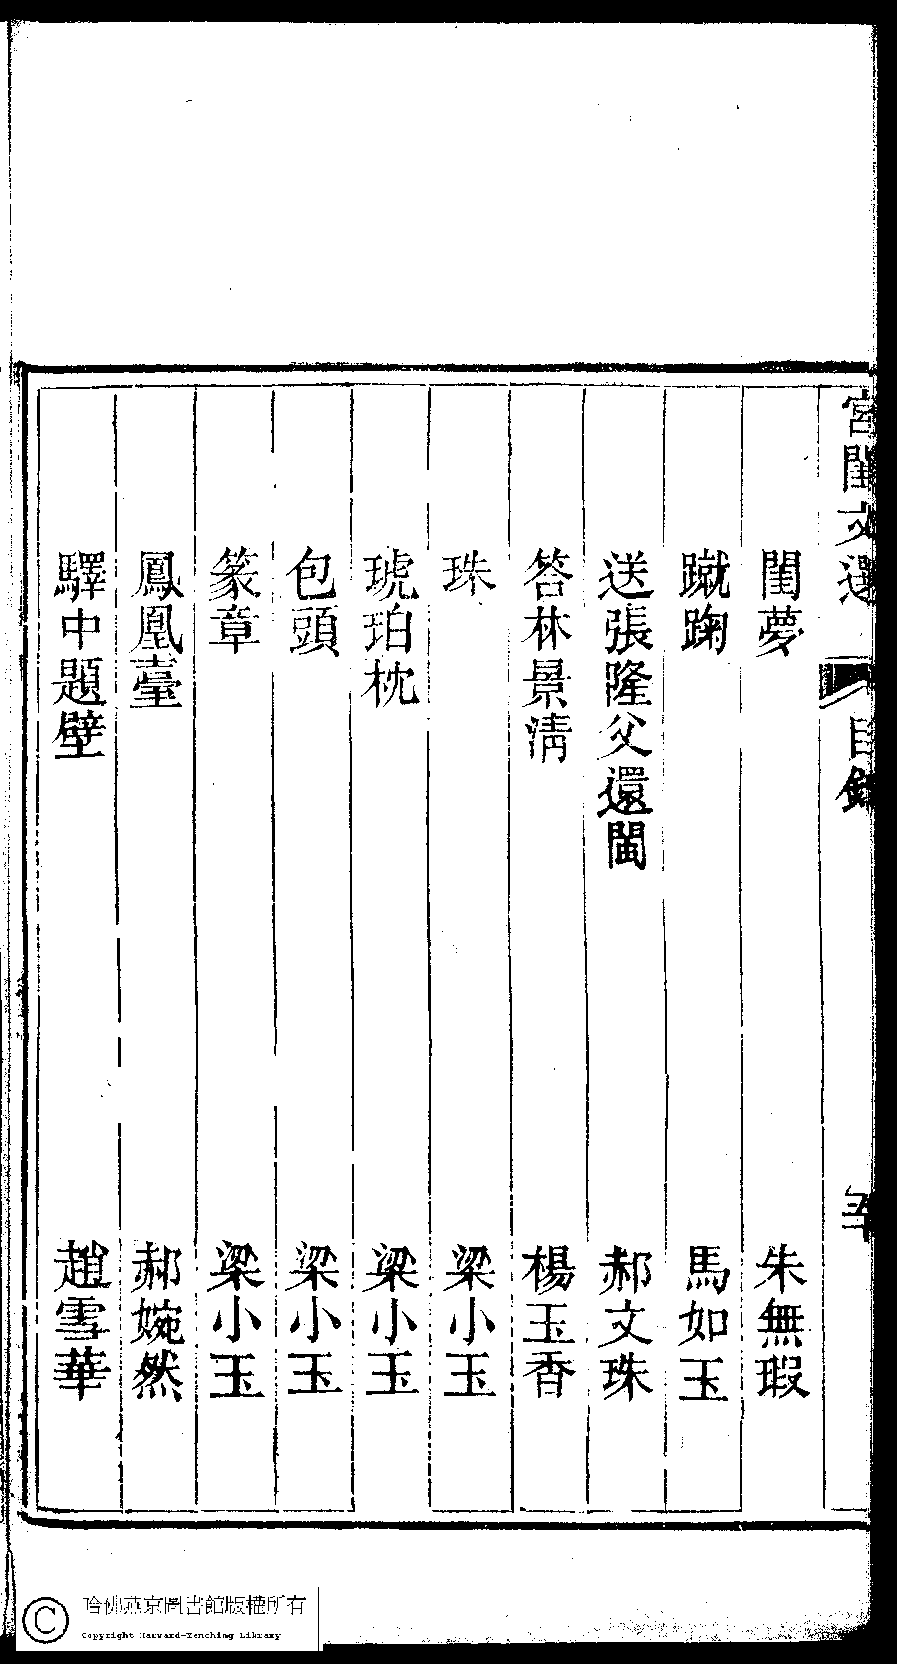 宮閨文選 目錄
閨夢 朱無瑕
蹴踘 馬如玉
送張隆父還閩 郝文珠
答林景清 楊玉香
珠 梁小玉
琥珀枕 梁小玉
包頭 梁小玉
篆章 梁小玉
鳳凰臺 郝婉然
驛中題壁 趙雪華
哈佛燕京圖書館版權所有
Copyright Harvard-Yenching Library